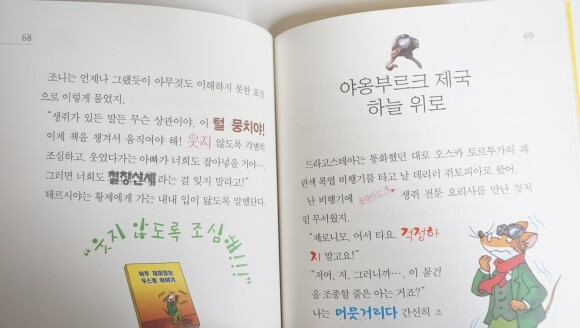 68
조니는 언제나 그랬듯이 아무것도 이해하지 못한 표정
으로 이렇게 물었지.
“생쥐가 있든 말든 무슨 상관이야, 이 털 뭉치야!
이제 책을 챙겨서 움직여야 해! 웃지 않도록 각별히
조심하고, 웃었다가는 아빠가 너희도 잡아넣을 거야….
그러면 너희도 철창신세라는 걸 잊지 말라고!”
테르시아는 황제에게 가는 내내 입이 닳도록 말했단다.
“웃지 않도록 조심해!!!”
아주 재미있는
우스개 이야기
69
야옹부르크 제국
하늘 위로
드라고스테아는 통화했던 대로 오스카 토르투가의 파
란색 복엽 비행기를 타고 날 데리러 쥐토피아로 왔어.
난 비행기에 생쥐 전문 요리사를 만난 것처
럼 무서웠지.
“제로니모, 어서 타요. 걱정하
지 말고요!”
“저어, 저, 그러니까…, 이 물건
을 조종할 줄은 아는 거죠?”
나는 머뭇거리다 간신히 조